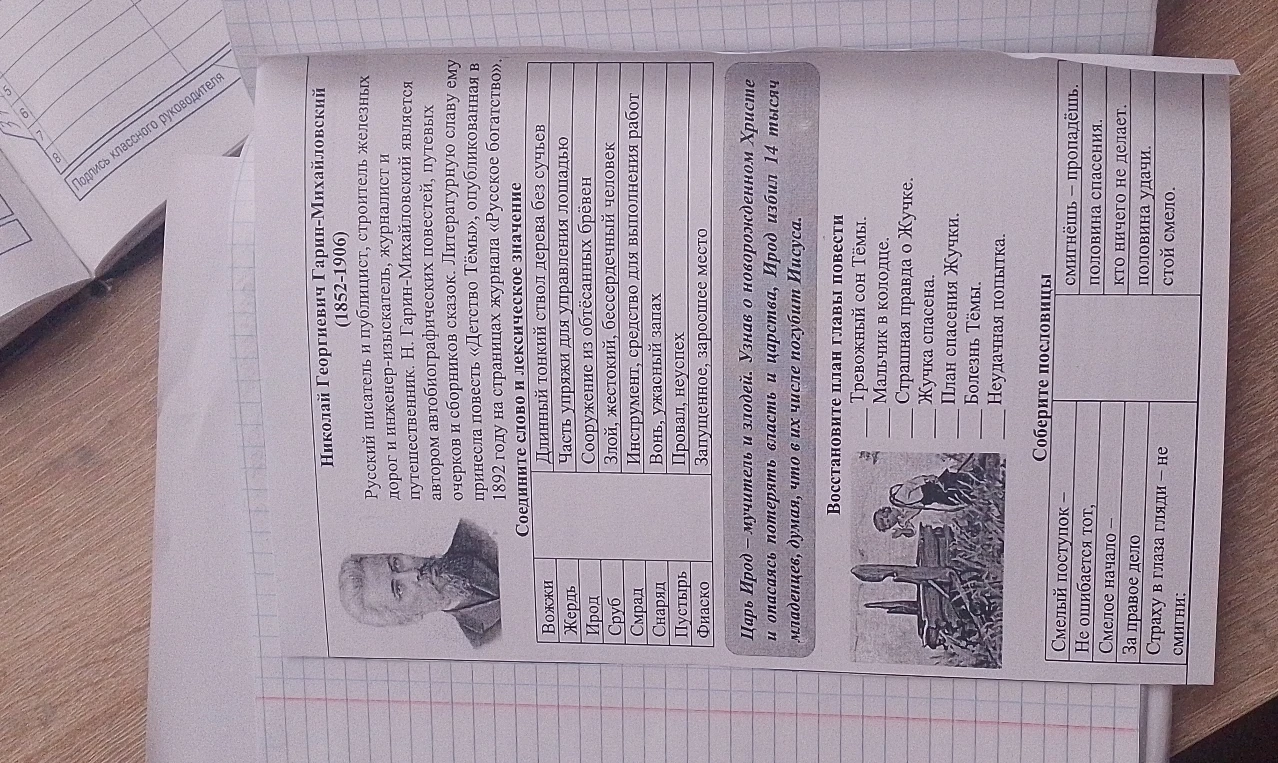 5
6
7
8
Подпись классного руководителя
Николай Георгиевич Гарин-Михайловский
(1852-1906)
Русский писатель и публицист, строитель железных
дорог и инженер-изыскатель, журналист и
путешественник. Н. Гарин-Михайловский является
автором автобиографических повестей, путевых
очерков и сборников сказок. Литературную славу ему
принесла повесть «Детство Тёмы», опубликованная в
1892 году на страницах журнала «Русское богатство».
Соедините слово и лексическое значение
Вожжи Длинный тонкий ствол дерева без сучьев
Жердь Часть упряжи для управления лошадью
Ирод Сооружение из обтёсанных брёвен
Сруб Злой, жестокий, бессердечный человек
Смрад Инструмент, средство для выполнения работ
Снаряд Вонь, ужасный запах
Пустырь Провал, неуспех
Фиаско Запущенное, заросшее место
Царь Ирод – мучитель и злодей. Узнав о новорожденном Христе
и опасаясь потерять власть и царства, Ирод избил 14 тысяч
младенцев, думая, что в их числе погубит Иисуса.
Восстановите план главы повести
___ Тревожный сон Тёмы.
___ Мальчик в колодце.
___ Страшная правда о Жучке.
___ Жучка спасена.
___ План спасения Жучки.
___ Болезнь Тёмы.
___ Неудачная попытка.
Соберите пословицы
Смелый поступок – смигнёшь – пропадёшь.
Не ошибается тот, половина спасения.
Смелое начало – кто ничего не делает.
За правое дело половина удачи.
Страху в глаза гляди – не стой смело.
смигни: